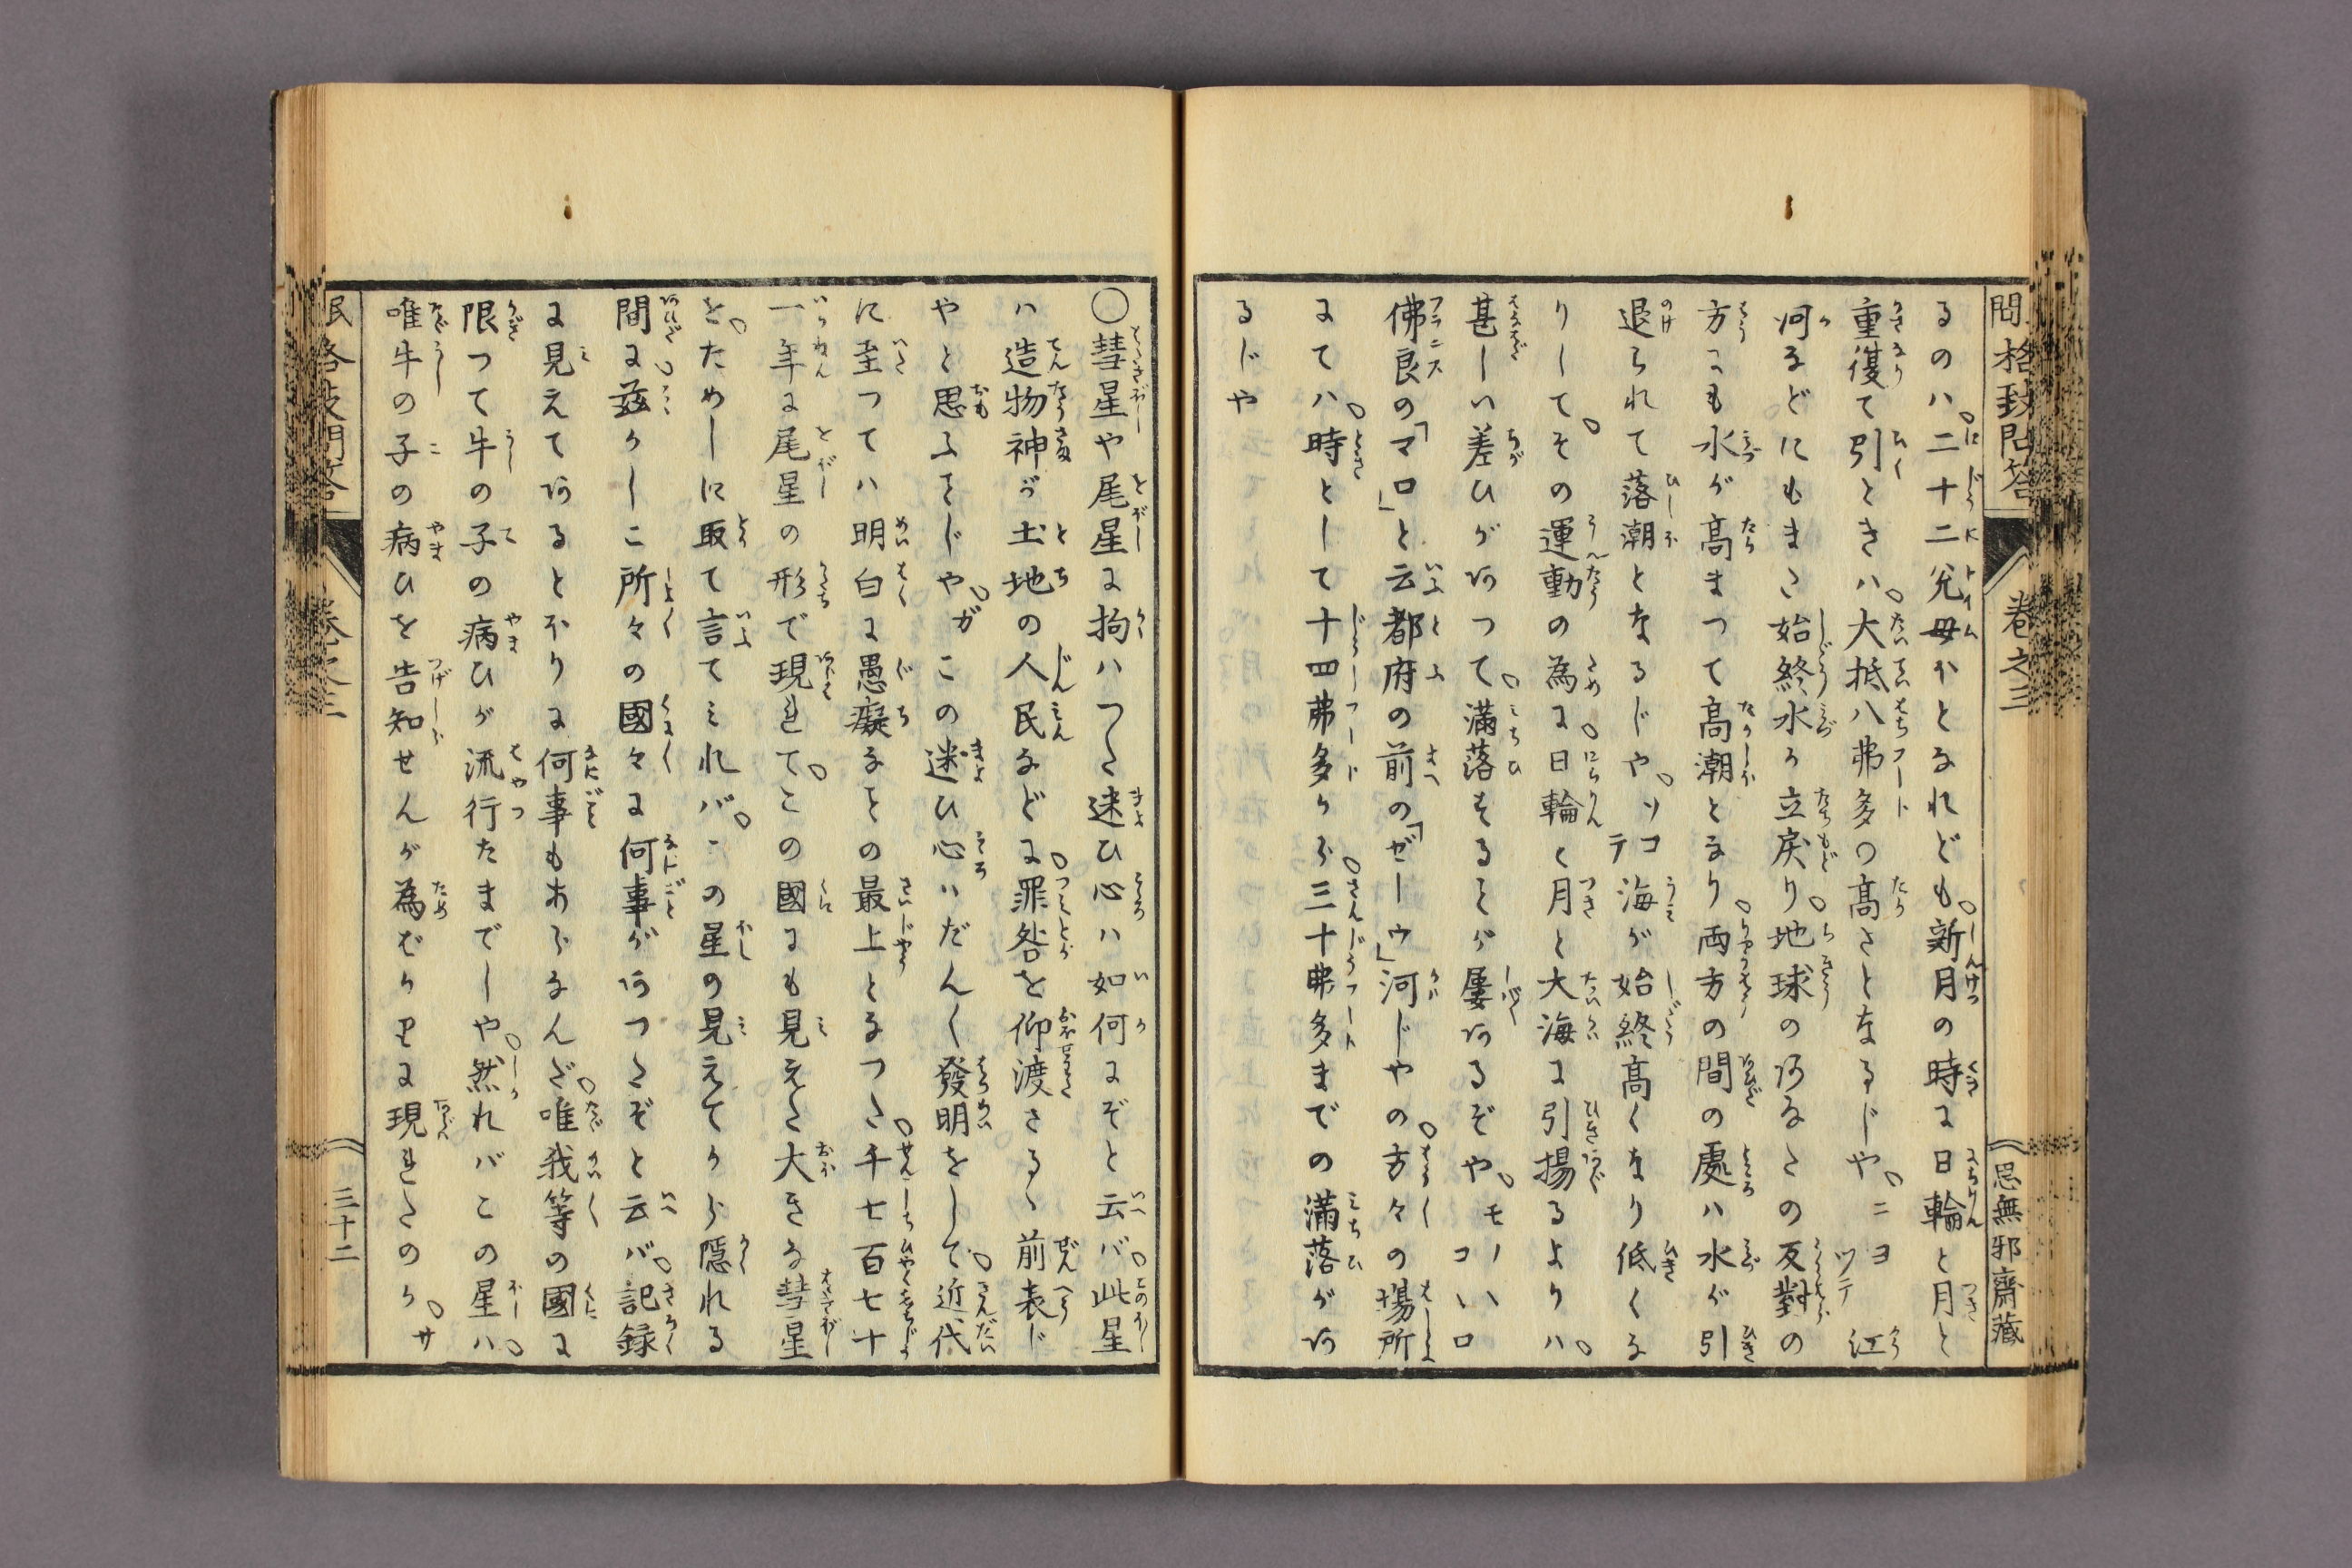 るのハ。二十二兊母かとなれども。新月の時に日輪と月と
重復て引ときハ。大抵八弗多の髙さとなるじや。ニヨツテ江
河などにもまた始終水が立戻り。地球の河なたの反對の
方にも水が髙まつて髙潮となり。両方の間の處ハ水が引
退られて落潮となるじや。ソコテ海が始終髙くなり低くな
りして。その運動の為に。日輪と月と大海に引揚るよりハ。
甚しい差ひがあつて。滿落することが屢あるぞや。モノハコいロ
佛良の「マロ」と云都府の前の「ゼーウ」河じやの。方々の場所
にてハ。時として十四弗多から。三十弗多までの滿落があ
るじや
〇彗星や尾星に拘ハつた迷ひ心ハ如何にぞと云バ。此星
ハ造物神が土地の人民などに。罪咎を仰渡さるゝ前表じ
やと思ふことじや。ガこの迷ひ心ハだん〱發明をして。近代
に至つてハ明白に愚癡なことの最上となつた。千七百七十
一年に尾星の形で現れて。この國にも見えた大きな彗星
を。ためしに取て言てみれバ。この星の見えてから隱れる
間に。茲かしこ所々の國々に何事があつたぞと云バ。記録
に見えてあるとほりに何事もあらなんだ。唯我等の國に
限つて牛の子の病ひが流行たまでしや。然れバこの星ハ。
唯牛の子の病ひを告知せんが為ばかりに現れたのか。サ
卷之三
思無邪齋藏
三十二